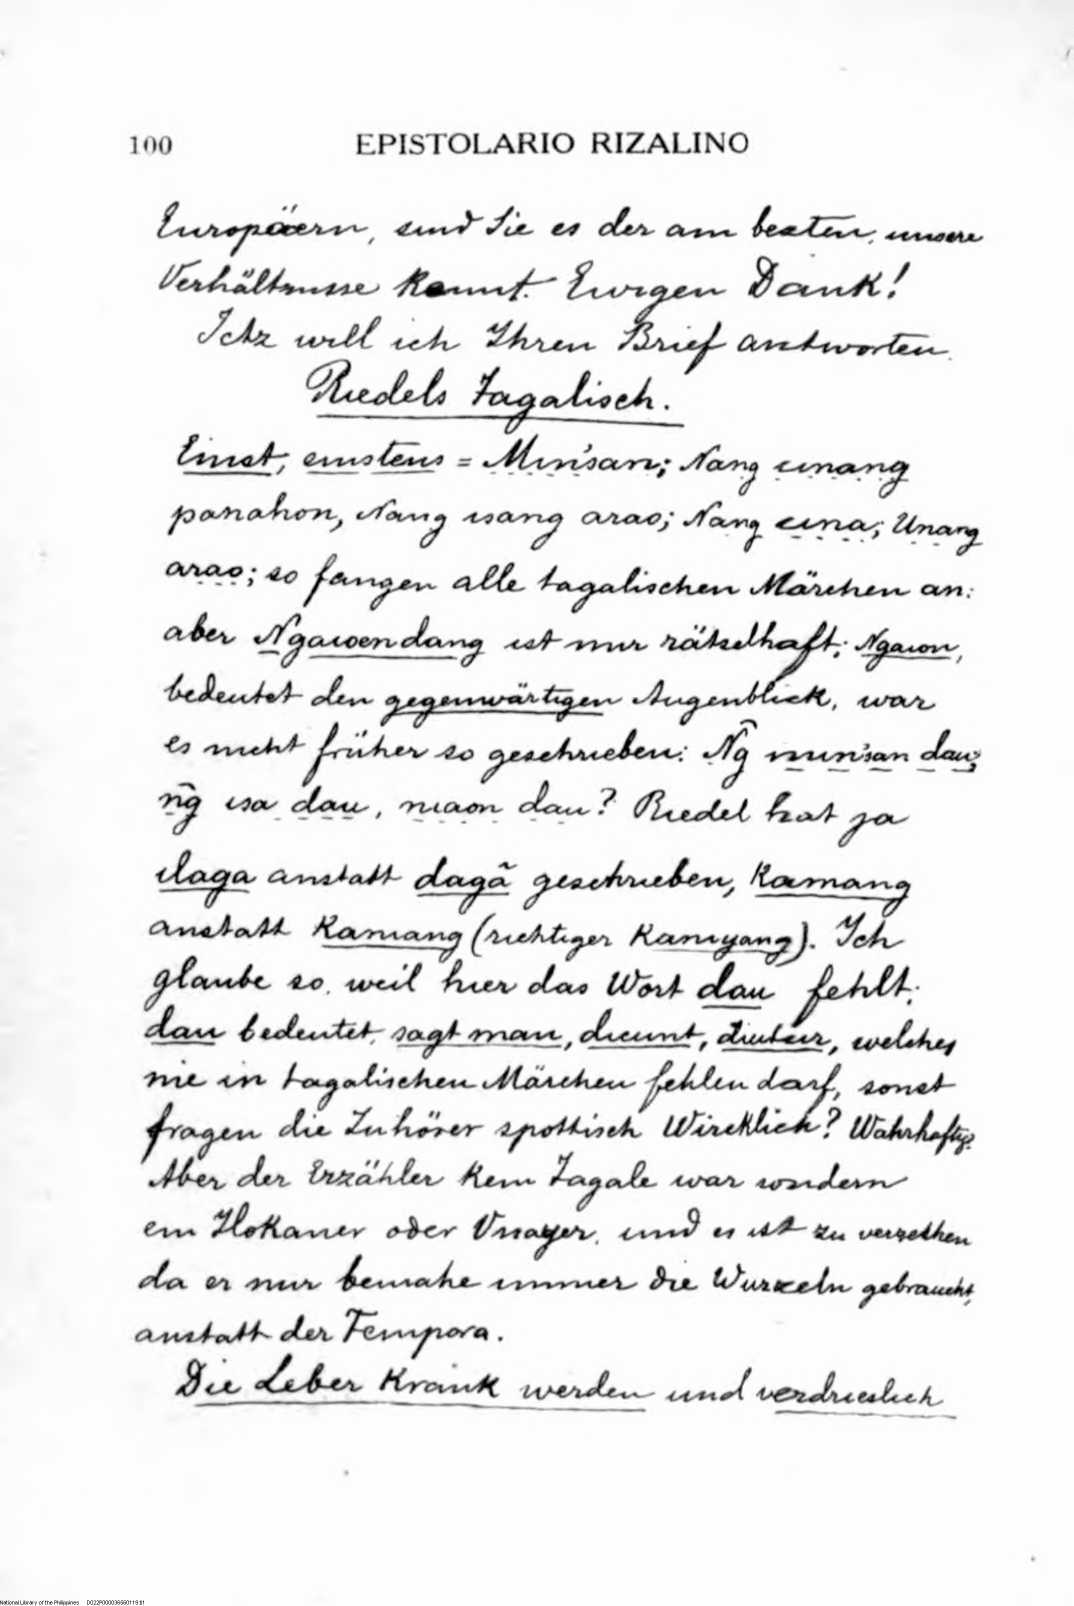 100 EPISTOLARIO RIZALINO
Europäern, sind Sie es der am besten, unsere
Verhältnisse kennt. Ewigen Dank!
Jetz will ich Ihren Brief antworten.
Riedels Tagalisch.
Einst, einstens = Minsan; Nang unang
panahon, Nang isang arao; Nang una; Unang
arao; so fangen alle tagalischen Märchen an:
aber Ngawendang ist mir rätselhaft; Ngaion,
bedeutet den gegenwärtigen Augenblick, war
es nicht früher so geschrieben: Ng̃ minsan dau;
ng̃ isa dau, niaon dau? Riedel hat ja
ilaga anstatt dagã geschrieben, Kamang
anstatt Kaniang (richtiger Kaniyang). Ich
glaube so, weil hier das Wort dau fehlt;
dau bedeutet, sagt man, dicunt, dicitur, welches
nie in tagalischen Märchen fehlen darf, sonst
fragen die Zuhörer spottisch Wircklich? Wahrhaftig?
Aber der Erzähler kein Tagale war sondern
ein Ilokaner oder Visayer, und es ist zu verzeihen
da er nur beinahe immer die Wurzeln gebraucht,
anstatt der Tempora.
Die Leber Krank werden und verdrieslich
National Library of the Philippines